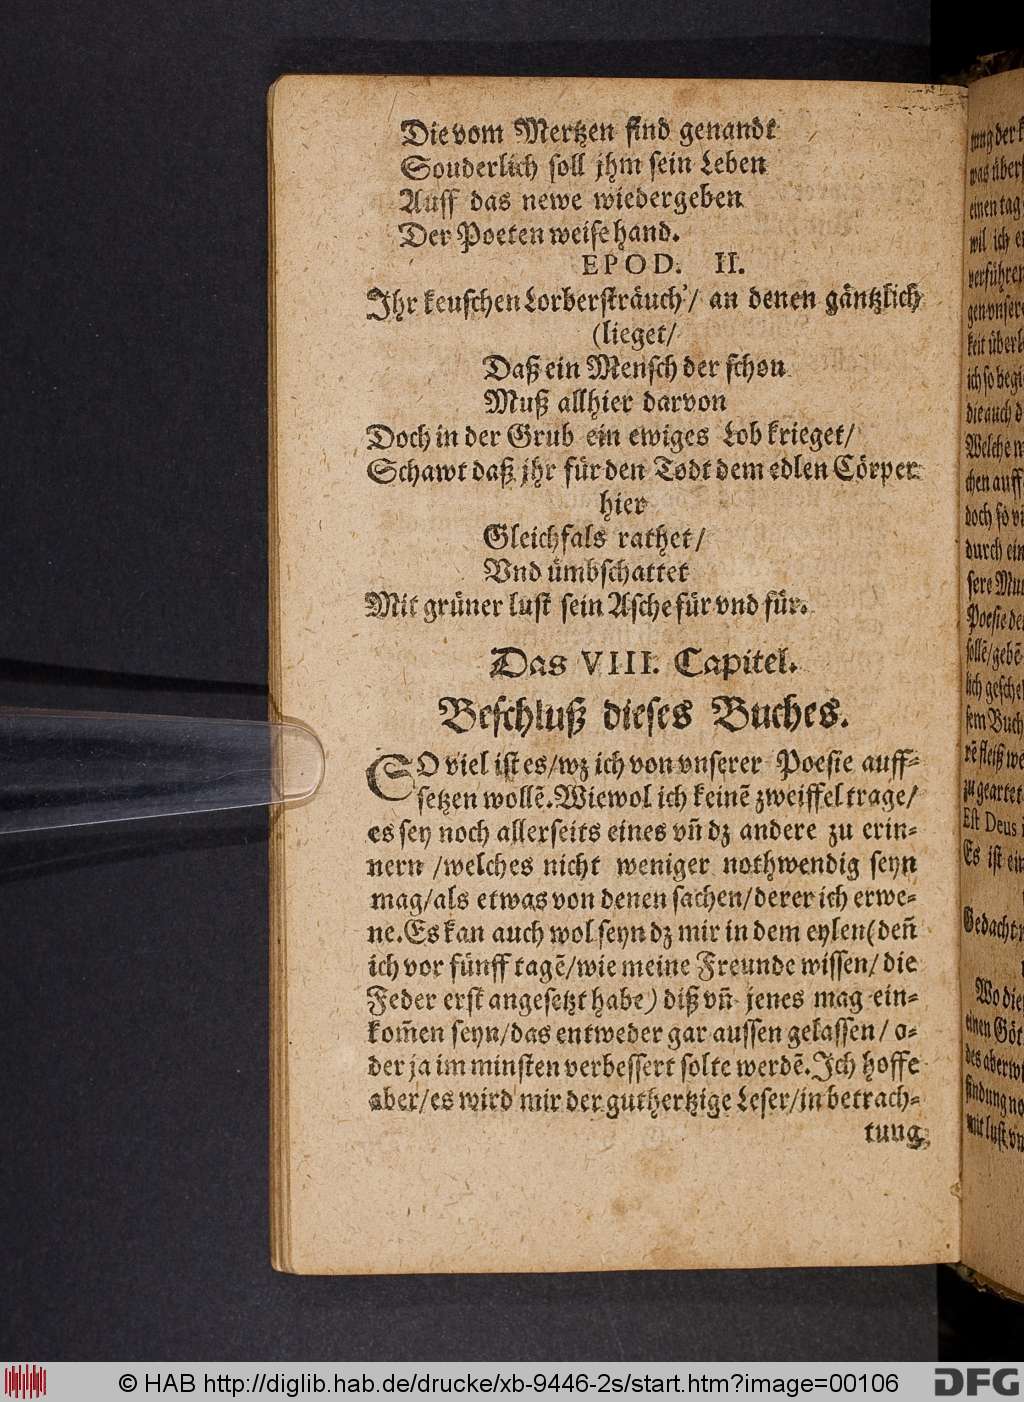 Die vom Mertzen sind genandt
Souderlich soll jhm sein Leben
Auff das newe wiedergeben
Der Poeten weise hand.
EPOD. II.
Jhr keuschen Lorbersträuch'/ an denen gäntzlich
(lieget/
Daß ein Mensch der schon
Muß allhier darvon
Doch in der Grub ein ewiges Lob krieget/
Schawt daß jhr für den Todt dem edlen Cörper
hier
Gleichfals rathet/
Vnd ümbschattet
Mit grüner lust sein Asche für vnd für.
Das VIII. Capitel.
Beschluß dieses Buches.
SO viel ist es/wz ich von vnserer Poesie auff-
setzen wollē. Wiewol ich keinē zweiffel trage/
es sey noch allerseits eines vñ dz andere zu erin-
nern /welches nicht weniger nothwendig seyn
mag/als etwas von denen sachen/derer ich erwe-
ne. Es kan auch wol seyn dz mir in dem eylen (deñ
ich vor fünff tagē/wie meine Freunde wissen/ die
Feder erst angesetzt habe) diß vñ jenes mag ein-
kom̃en seyn/das entweder gar aussen gelassen/ o-
der ja im minsten verbessert solte werdē. Jch hoffe
aber/es wird mir der guthertzige Leser/in betrach-
tung
© HAB http://diglib.hab.de/drucke/xb-9446-2s/start.htm?image=00106
DFG